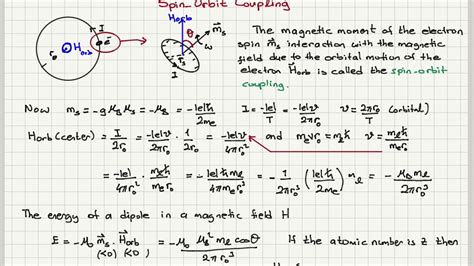 Spin-Orbit Coupling
I e⁻ H_orb r_o
H_orb θ m⃗_s ω r_s I
The magnetic moment of the electron
spin m⃗_s interaction with the magnetic
field due to the orbital motion of the
electron H⃗_orb is called the spin-orbit
coupling.
Now m_s = -g μ_B s = -μ_B = -|e|ħ/2m_e I = -|e|/T = -|e|v/2πr_o v = 2πr_o/T (orbital)
H_orb(center) = I/2r_o = -|e|v/2πr_o · 1/2r_o = -|e|v/4πr_o² and m_e v r_o = m_ℓ ħ v = m_ℓ ħ/m_e r_o
= -|e|/4πr_o² · m_ℓ ħ/m_e r_o = -|e|ħ m_ℓ/4πr_o³ m_e = -1/2πr_o³ (|e|ħ/2m_e) m_ℓ = -μ_B m_ℓ/2πr_o³
The energy of a dipole in a magnetic field H
E = -μ_o m⃗_s · H⃗_orb = -μ_o μ_B² m_ℓ cosθ/2πr_o³ If the atomic number is z then
(<0) (<0)